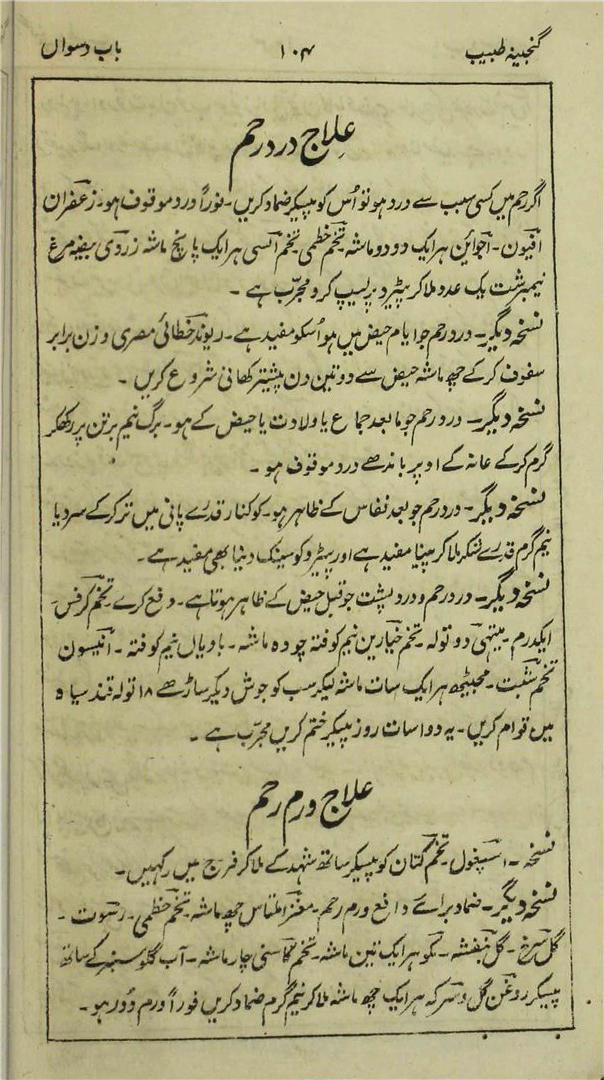 گنجینہ طبیب ۱۰۴ باب دسواں
علاج درد رحم
اگر رحم میں کسی سبب سے درد ہو تو اُس کو پیسکر ضماد کریں۔ فوراً درد موقوف ہو۔ زعفران
افیون۔ اجوائن ہر ایک دو دو ماشہ تخم خطمی تخم السی ہر ایک پانچ ماشہ زردی بیضہ مرغ
نیمبرشت یک عدد ملا کر پیٹرو پر لیپ کرو مجرب ہے ۔
نسخہ دیگر۔ درد رحم جو ایام حیض میں ہو اُسکو مفید ہے۔ ریوند خطائی مصری وزن برابر
سفوف کر کے چھ ماشہ حیض سے دو تین دن پیشتر کھانی شروع کریں ۔
نسخہ دیگر۔ درد رحم جو مابعد جماع یا ولادت یا حیض کے ہو۔ برگ نیم برتن پر رکھکر
گرم کر کے عانہ کے اوپر باندھے درد موقوف ہو ۔
نسخہ دیگر۔ درد رحم جو بعد نفاس کے ظاہر ہو۔ کوکنار قدرے پانی میں تر کر کے سرد یا
نیم گرم قدرے شکر ملا کر پینا مفید ہے اور پیٹرو کو سینک دینا بھی مفید ہے۔
نسخہ دیگر۔ درد رحم و درد پشت جو قبل حیض کے ظاہر ہوتا ہے۔ دفع کرے۔ تخم کرفس
ایکدرم۔ میتھی دو تولہ۔ تخم خیارین نیم کوفتہ چودہ ماشہ۔ بادیاں نیم کوفتہ۔ انیسون
تخم شبت۔ مجیٹھ ہر ایک سات ماشہ لیکر سب کو جوش دیکر ساڑھے ۱۸ تولہ قند سیاہ
میں قوام کریں۔ یہ دوا سات روز پیکر ختم کریں مجرب ہے ۔
علاج ورم رحم
نسخہ ۔ اسپغول۔ تخم کتان کو پیسکر ساتھ شہد کے ملا کر فرج میں رکھیں۔
نسخہ دیگر۔ ضماد برائے دافع ورم رحم۔ مغز املتاس چھ ماشہ۔ تخم خطمی۔ رسوت ۔
گل سرخ۔ گل بنفشہ۔ مکو ہر ایک تین ماشہ۔ تخم کاسنی چار ماشہ۔ آب مکو سبز کے ساتھ
پیسکر روغن گل و سرکہ ہر ایک چھ ماشہ ملا کر نیم گرم ضماد کریں فوراً ورم دور ہو۔